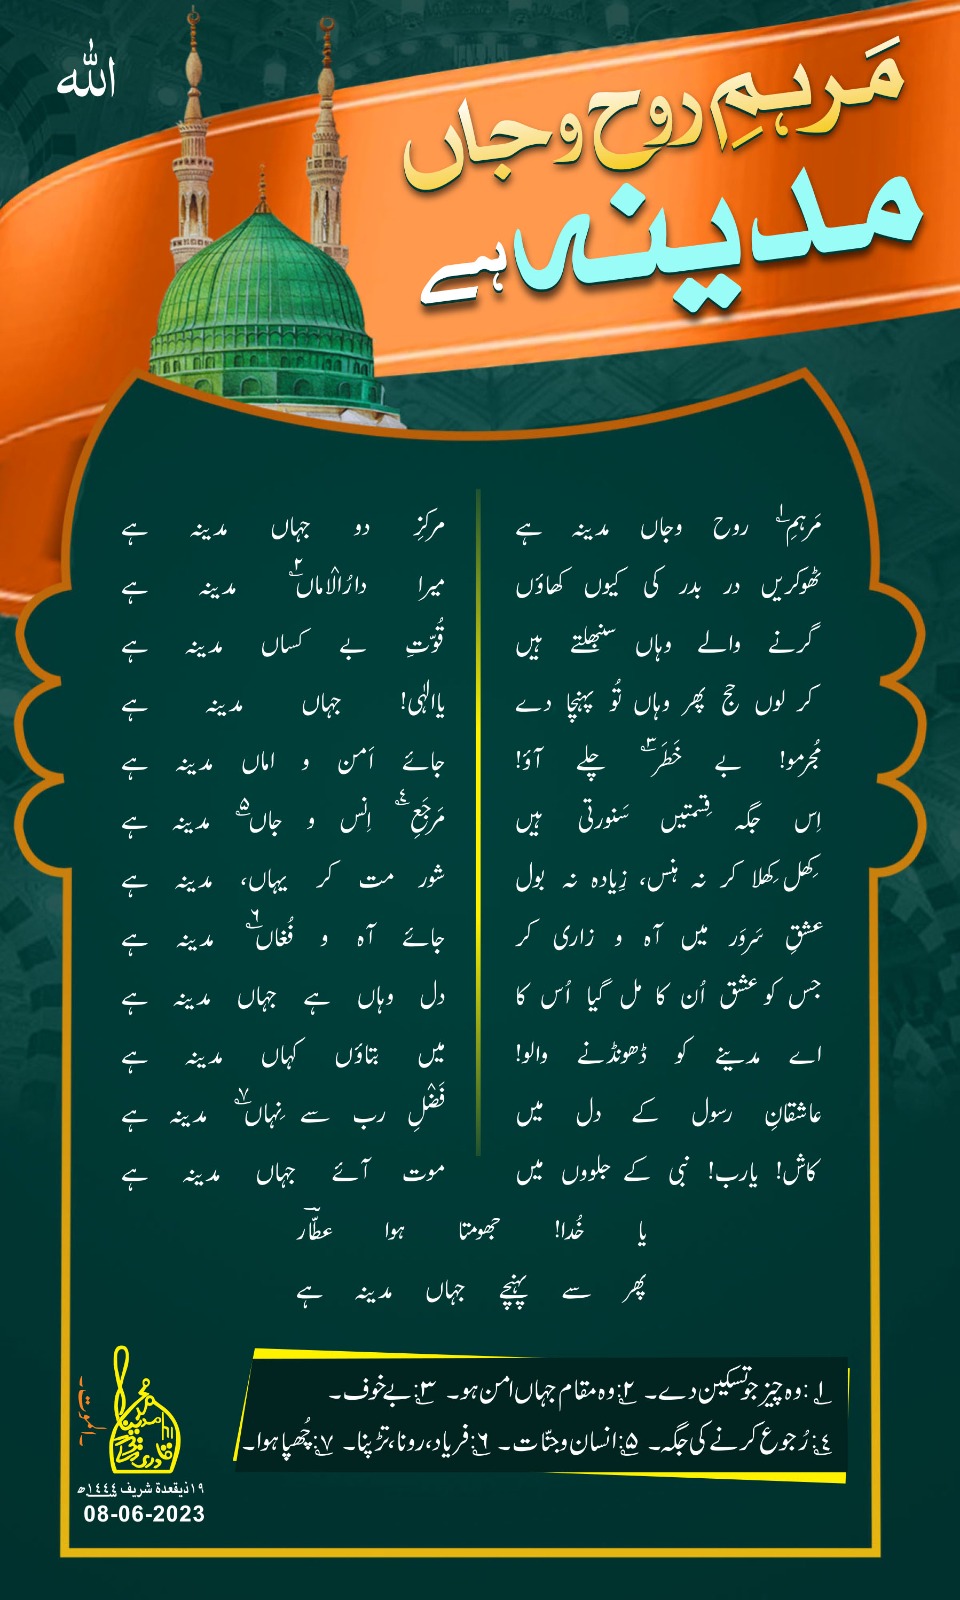 الله
مَرہمِ روح وجاں
مدینہ ہے
مَرہمِ۱ روح وجاں مدینہ ہے مرکزِ دو جہاں مدینہ ہے
ٹھوکریں در بدر کی کیوں کھاؤں میرا دارُالْاماں۲ مدینہ ہے
گرنے والے وہاں سنبھلتے ہیں قُوّتِ بے کساں مدینہ ہے
کر لوں حج پھر وہاں تُو پہنچا دے یاالٰہی! جہاں مدینہ ہے
مُجرمو! بے خَطَر۳ چلے آؤ! جائے اَمن و اماں مدینہ ہے
اِس جگہ قِسمتیں سَنورتی ہیں مَرجَعِ۴ اِنس و جاں۵ مدینہ ہے
کِھل کِھلا کر نہ ہنس، زِیادہ نہ بول شور مت کر یہاں، مدینہ ہے
عشقِ سَروَر میں آہ و زاری کر جائے آہ و فُغاں۶ مدینہ ہے
جس کو عشق اُن کا مل گیا اُس کا دل وہاں ہے جہاں مدینہ ہے
اے مدینے کو ڈھونڈنے والو! میں بتاؤں کہاں مدینہ ہے
عاشقانِ رسول کے دل میں فَضْلِ رب سے نِہاں۷ مدینہ ہے
کاش! یارب! نبی کے جلووں میں موت آئے جہاں مدینہ ہے
یا خُدا! جھومتا ہوا عطّاؔر
پھر سے پہنچے جہاں مدینہ ہے
۱: وہ چیز جو تسکین دے۔ ۲: وہ مقام جہاں امن ہو۔ ۳: بے خوف۔
۴: رُجوع کرنے کی جگہ۔ ۵: انسان و جنّات۔ ۶: فریاد، رونا، تڑپنا۔ ۷: چُھپا ہوا۔
۱۹ذیقعدۃ شریف ۱۴۴۴ھ
08-06-2023